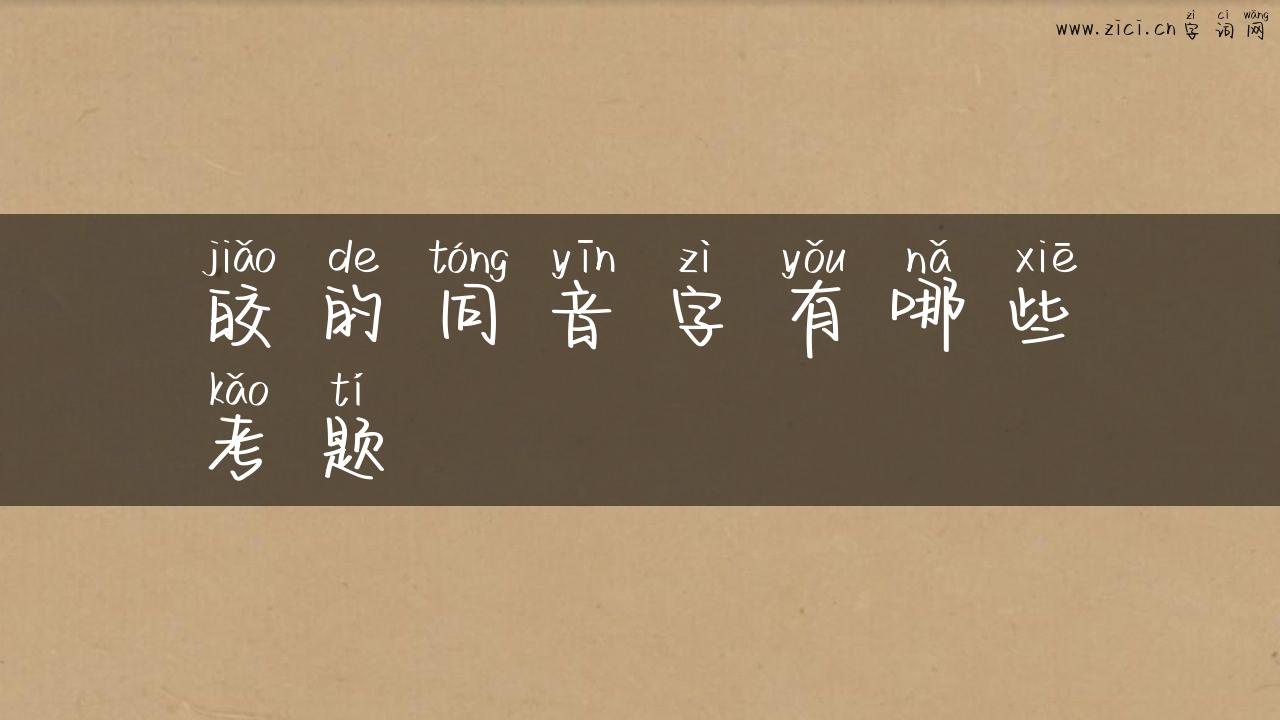 zì cí wǎng
www.zici.cn 字 词 网
jiǎo de tóng yīn zì yǒu nǎ xiē
皎 的 同 音 字 有 哪 些
kǎo tí
考 题